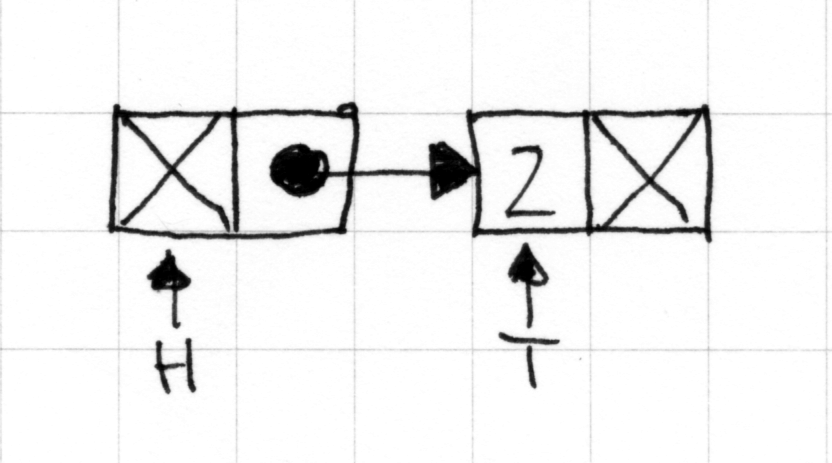 2
H T